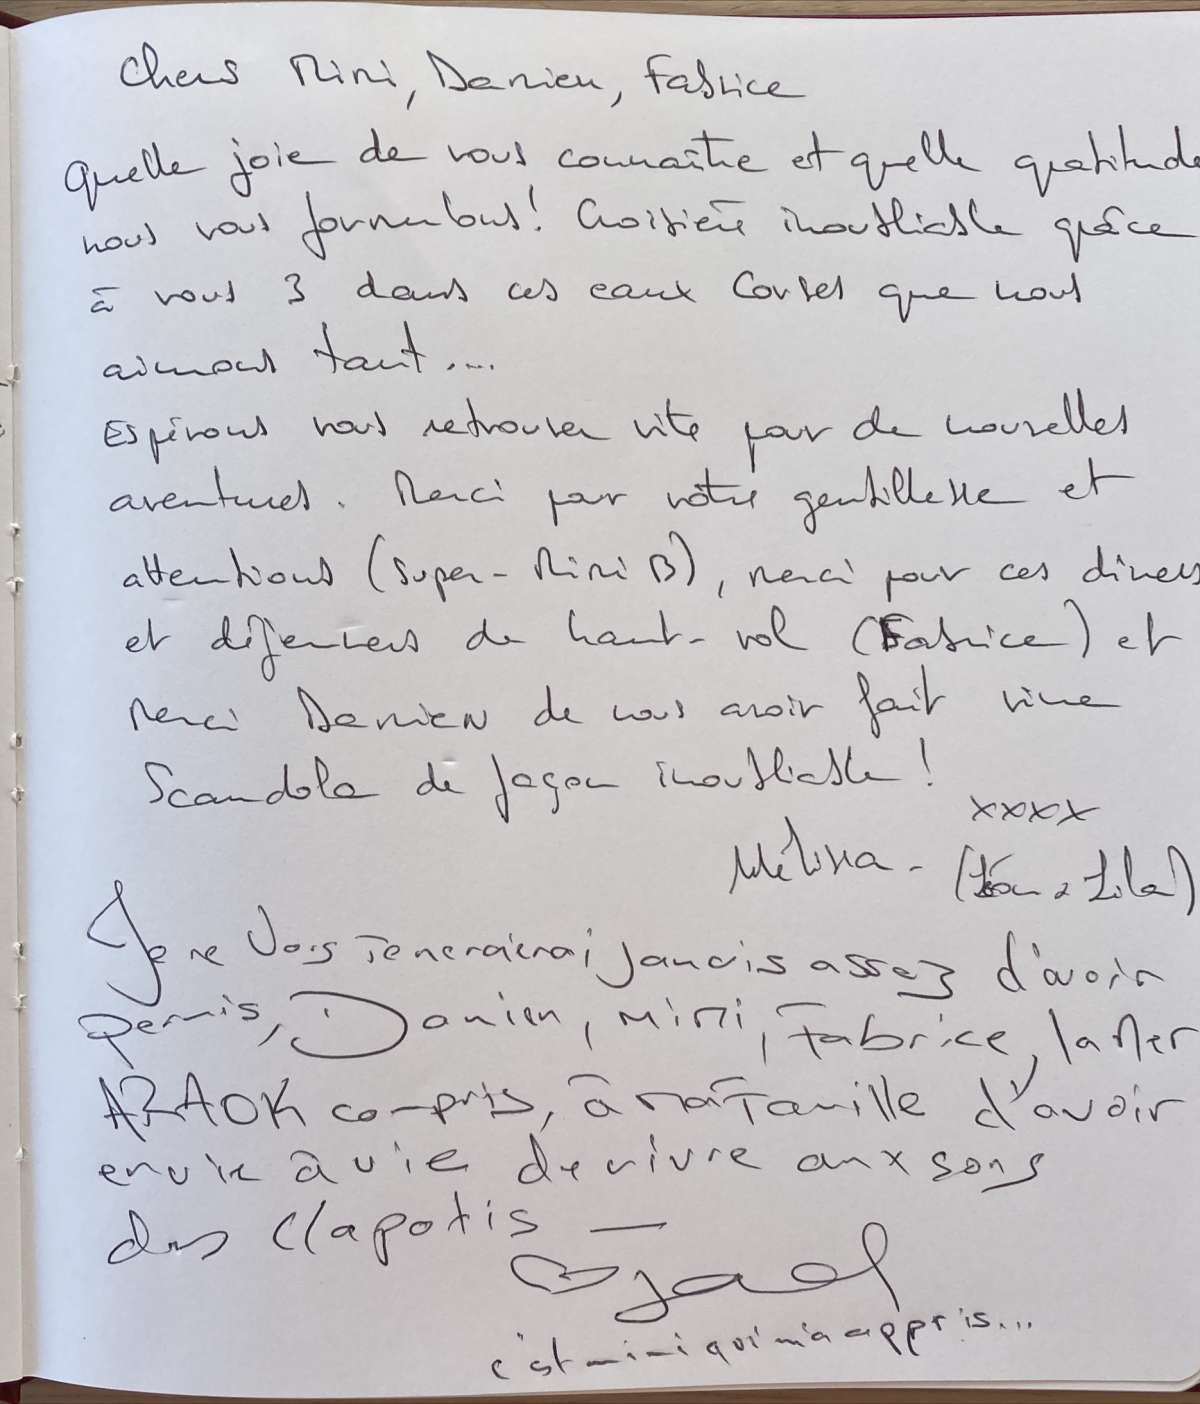 Chers Mimi, Damien, Fabrice
Quelle joie de vous connaître et quelle gratitude
nous vous formulons! Croisière inoubliable grâce
à vous 3 dans ces eaux Corses que nous
aimons tant....
Espérons vous retrouver vite pour de nouvelles
aventures. Merci pour votre gentillesse et
attentions (Super-Mimi B), merci pour ces diners
et déjeuners de haut-vol (Fabrice) et
merci Damien de nous avoir fait vivre
Scandola de façon inoubliable!
xxxx
Mélissa - (Léon & Lila)
Je ne vous remercierai jamais assez d'avoir
permis, Damien, Mimi, Fabrice, la Mer
ARAOK compris, à ma famille d'avoir
envie à vie de vivre aux sons
des clapotis —
c'est mimi qui m'a appris...